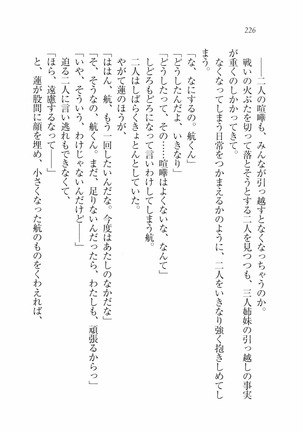 226
――二人の喧嘩も、みんなが引っ越すとなくなっちゃうのか。
戦いの火ぶたを切って落とそうとする二人を見つつも、三人姉妹の引っ越しの事実
が重くのしかかってきて。
なくなってしまう日常をつかまえるかのように、二人をいきなり強く抱きしめてし
まう。
「な、なにするの。航くん」
「どうしたんだよ、いきなり」
「どうしたって、その……喧嘩はよくないな、なんて」
しどろもどろになって言いわけしてしまう航。
二人はしばらくきょとんとしていた。
やがて蓮のほうが、
「ははん、航、もう一回したいんだな。今度はあたしのなかだな」
「そ、そうなの、航くん。まだ、足りないんだったら、わたしも、頑張るからっ」
「いや、そういう、わけじゃないんだけど――」
迫る二人に言い逃れもできなくて、
「ほら、遠慮するなって――」
と、蓮が股間に顔を埋め、小さくなった航のものをくわえれば、